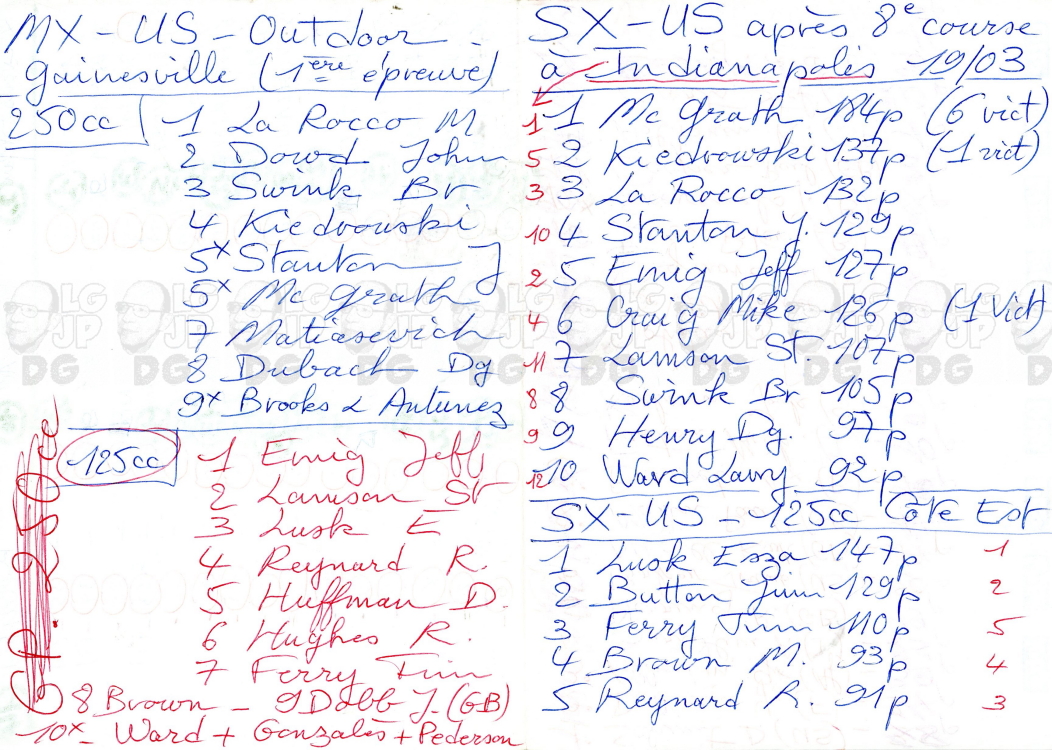 MX-US-Outdoor.
Gainesville (1ère épreuve)
250cc 1 La Rocco M
2 Dowd John
3 Swink Br
4 Kiedrowski
5x Stanton J
5x Mc Grath
7 Matiasevich
8 Dubach Dg
9x Brooks & Antunez
125cc 1 Emig Jeff
2 Lamson St
3 Lusk E
4 Reynard R.
5 Huffman D.
6 Hughes R.
7 Ferry Tim
8 Brown - 9 Dobb J. (GB)
10x - Ward + Gonzalès + Pederson
GP. 250cc
SX-US après 8e course
à Indianapolis 19/03
1 1 Mc Grath 184p (6 vict)
5 2 Kiedrowski 137p (1 vict)
3 3 La Rocco 132p
10 4 Stanton J. 129p
2 5 Emig Jeff 127p
4 6 Craig Mike 126p (1 Vict)
11 7 Lamson St. 107p
8 8 Swink Br 105p
9 9 Henry Dg. 97p
12 10 Ward Larry 92p
SX-US - 125cc Côte Est
1 Lusk Ezra 147p 1
2 Button Jim 129p 2
3 Ferry Tim 110p 5
4 Brown M. 93p 4
5 Reynard R. 91p 3